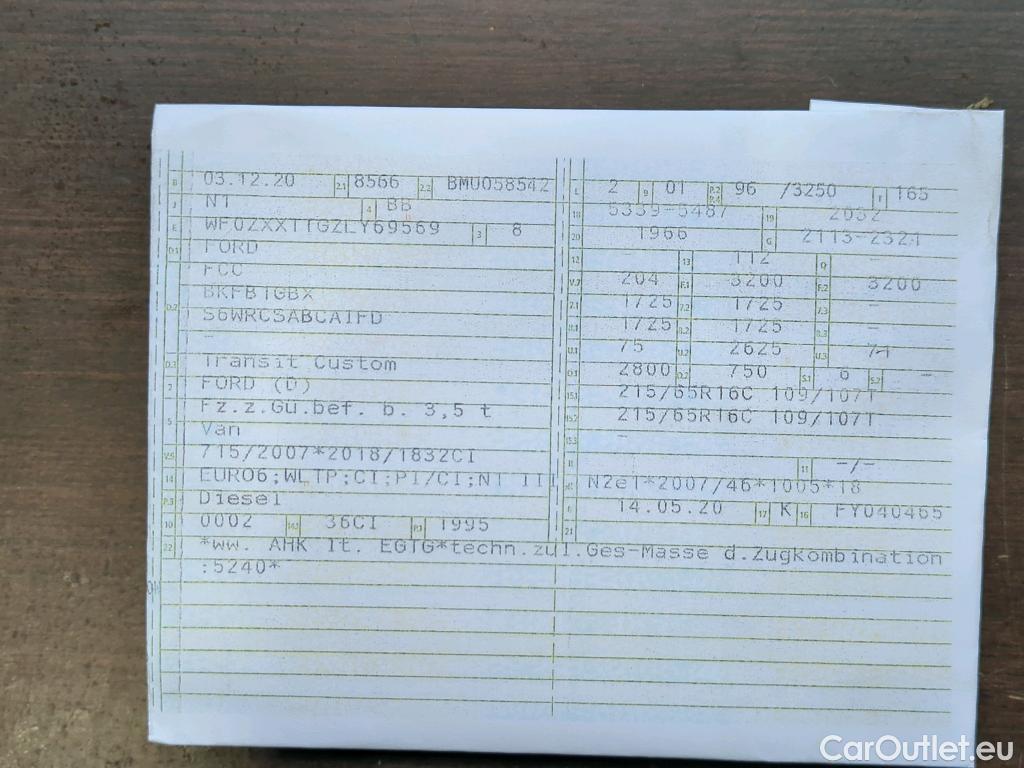 B 03.12.20 2.1 8566 2.2 BMU058542 L 2 9 01 P.2 P.4 96 /3250 T 165
J N1 4 BB 18 5339-5487 19 2032
E WF0ZXXTTGZLY69569 3 8 20 1966 G 2113-2321
D.1 FORD 12 - 13 112 Q -
FCC V.7 204 F.1 3200 F.2 3200
BKFB1GBX 7.1 1725 7.2 1725 7.3 -
D.2 S6WRCSABCAIFD 8.1 1725 8.2 1725 8.3 -
- U.1 75 U.2 2625 U.3
D.3 Transit Custom O.1 2800 O.2 750 S.1 6 S.2 -
2 FORD (D) 15.1 215/65R16C 109/107T
5 Fz.z.Gü.bef. b. 3,5 t 15.2 215/65R16C 109/107T
Van 15.3 -
V.9 715/2007*2018/1832CI R 11 -/-
14 EURO6;WLTP;CI;PI/CI;N1 III K N2e1*2007/46*1005*18
P.3 Diesel 6 14.05.20 17 K 16 FY040465
10 0002 14.1 36CI P.1 1995 21
22 *ww. AHK lt. EGTG*techn.zul.Ges-Masse d.Zugkombination
:5240*
CarOutlet.eu